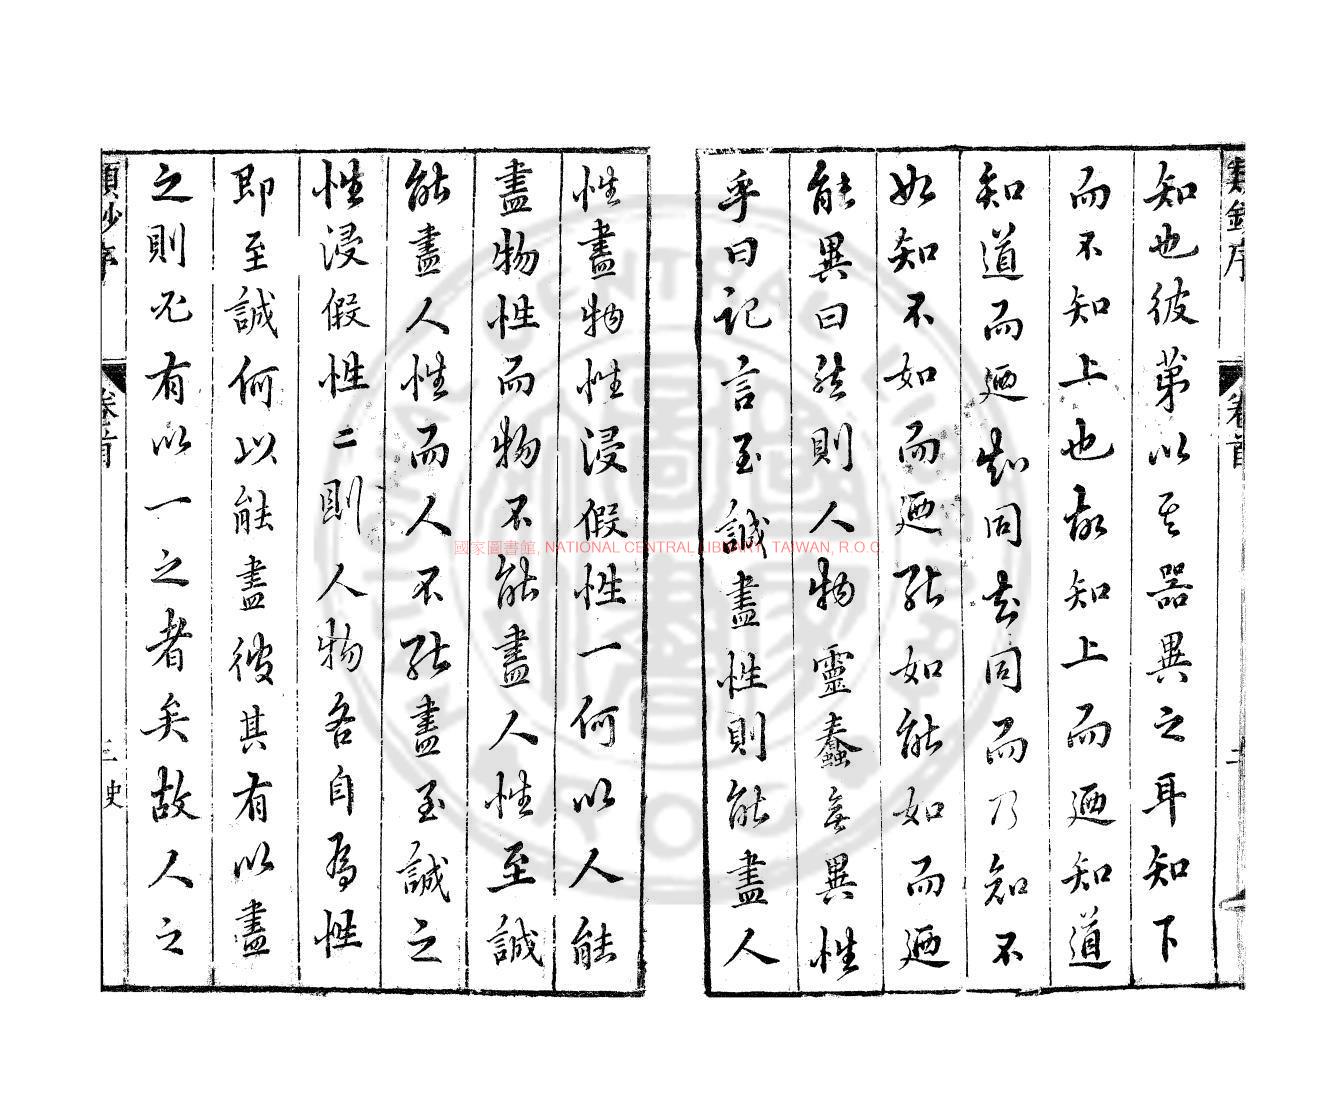 類鈔序
卷首
二
知也彼第以其器異之耳知下
而不知上也故知上而迺知道
知道而迺知同知同而乃知不
如知不如而迺能如能如而迺
能異曰然則人物靈蠢無異性
乎曰記言至誠盡性則能盡人
性盡物性浸假性一何以人能
盡物性而物不能盡人性至誠
能盡人性而人不能盡至誠之
性浸假性二則人物各自為性
即至誠何以能盡彼其有以盡
之則必有以一之者矣故人之
類鈔序
卷首
三
國家圖書館, NATIONAL CENTRAL LIBRARY, TAIWAN, R.O.C.